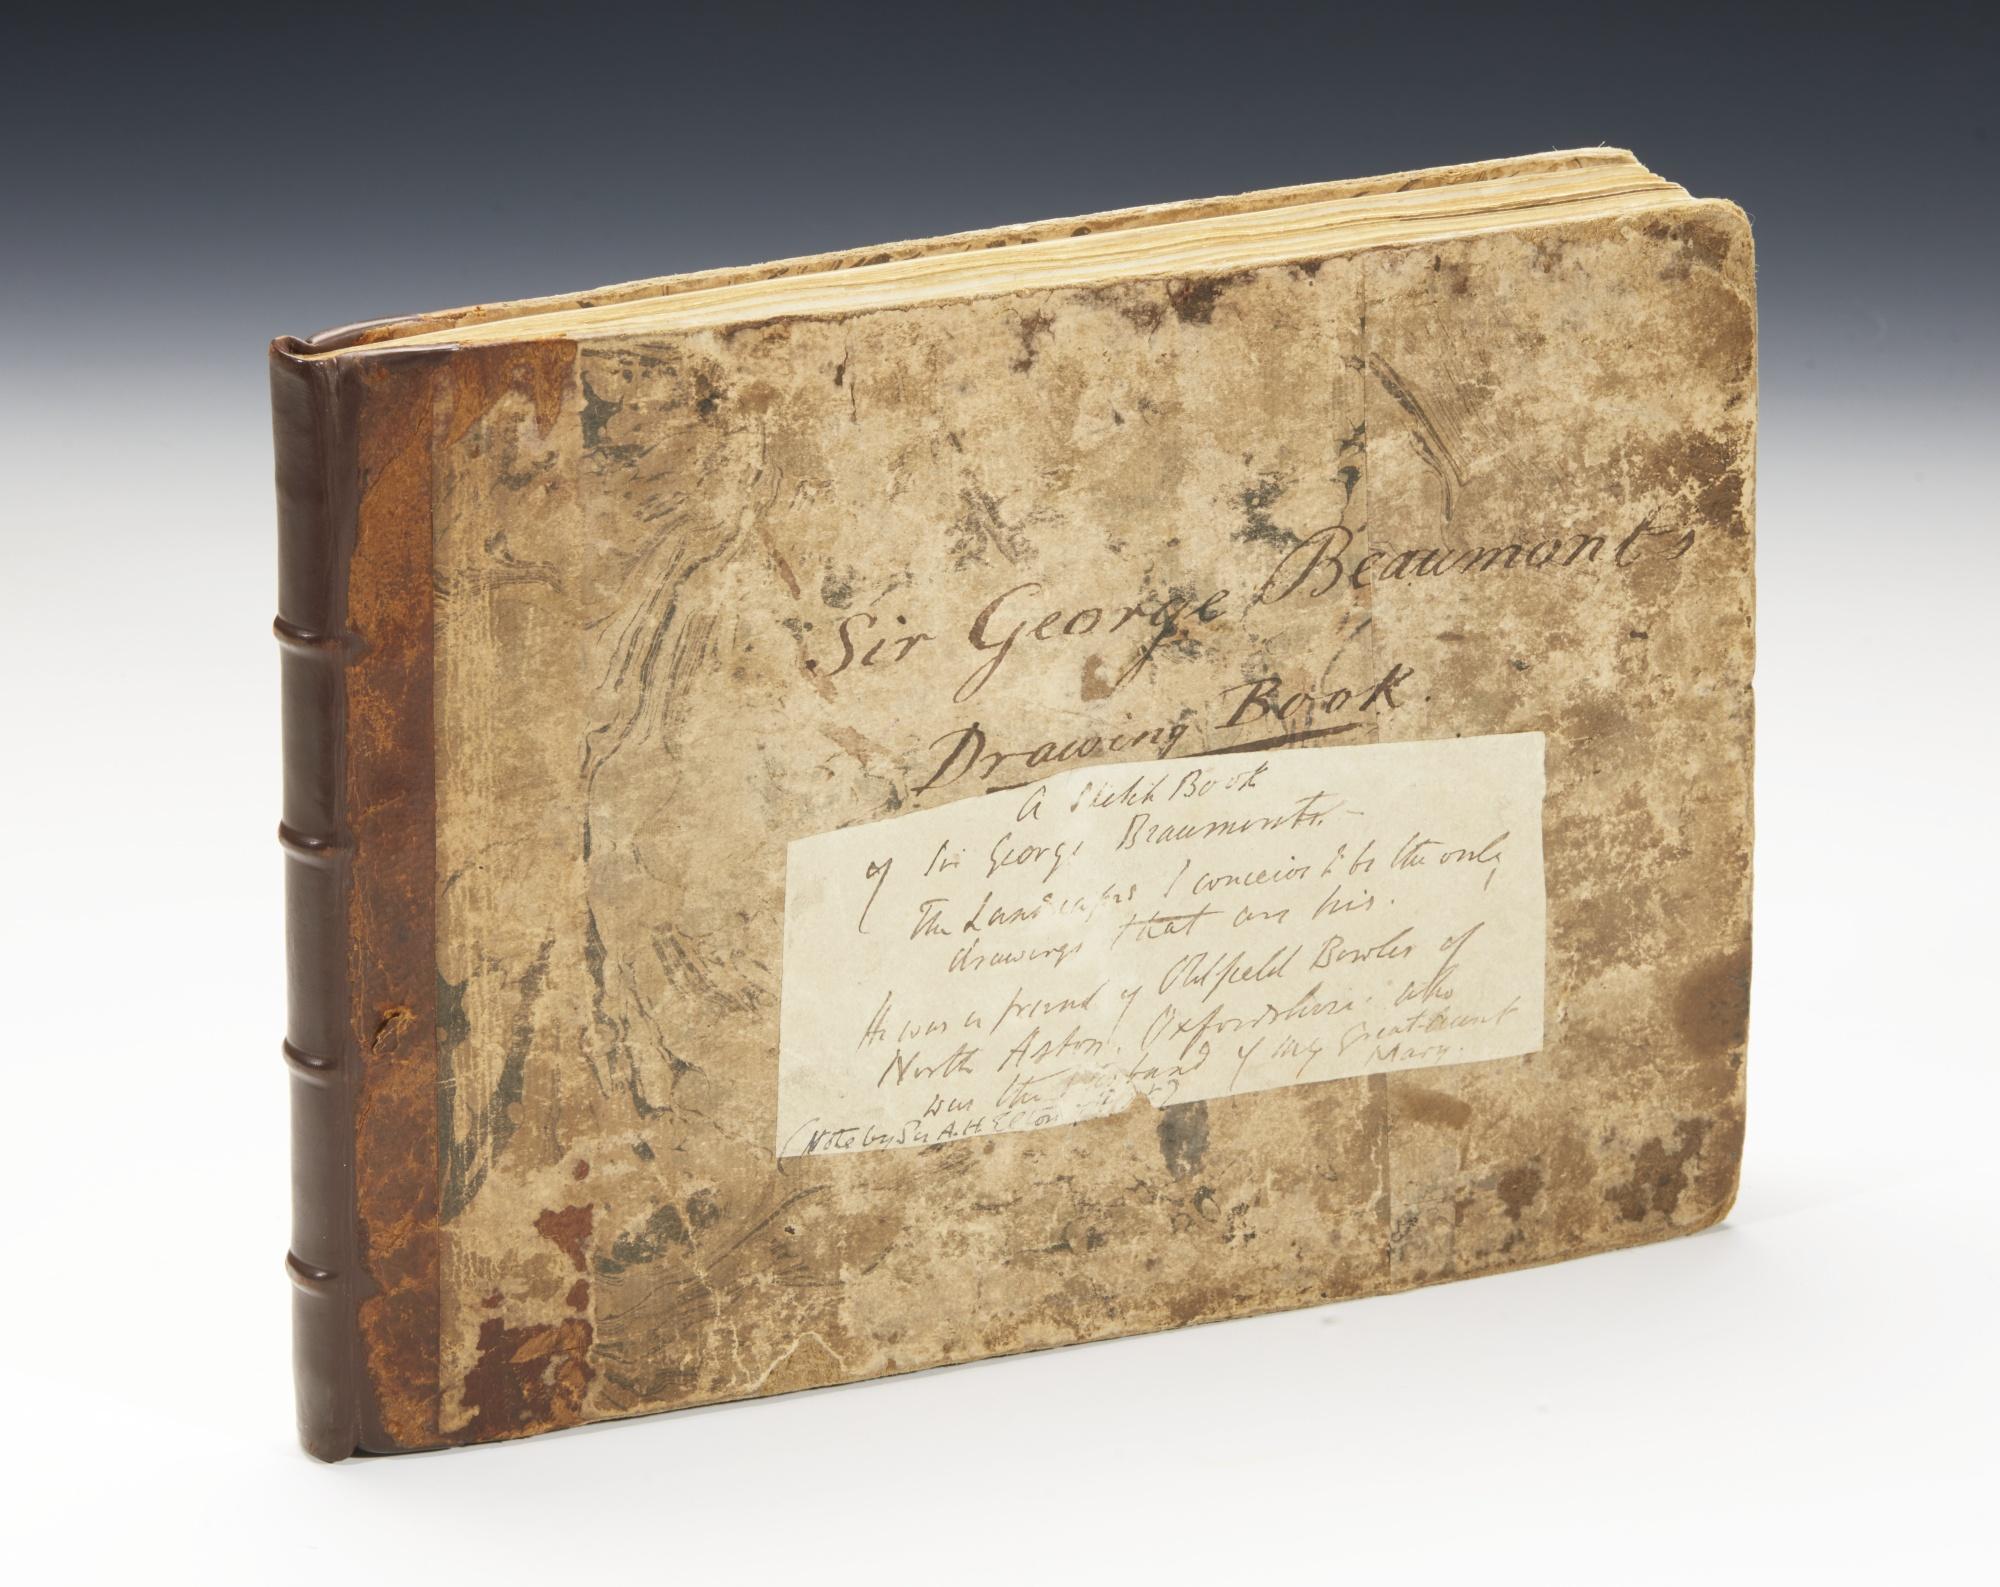 Sir George Beaumont's
Drawing Book.
A Sketch Book
of Sir George Beaumont's.—
The Landscapes I conceive to be the only
drawings that are his.
He was a friend of Oldfield Bowles of
North Aston. Oxfordshire. who
was the husband of my Great-Aunt
Mary.
(Note by Sir A. H Elton